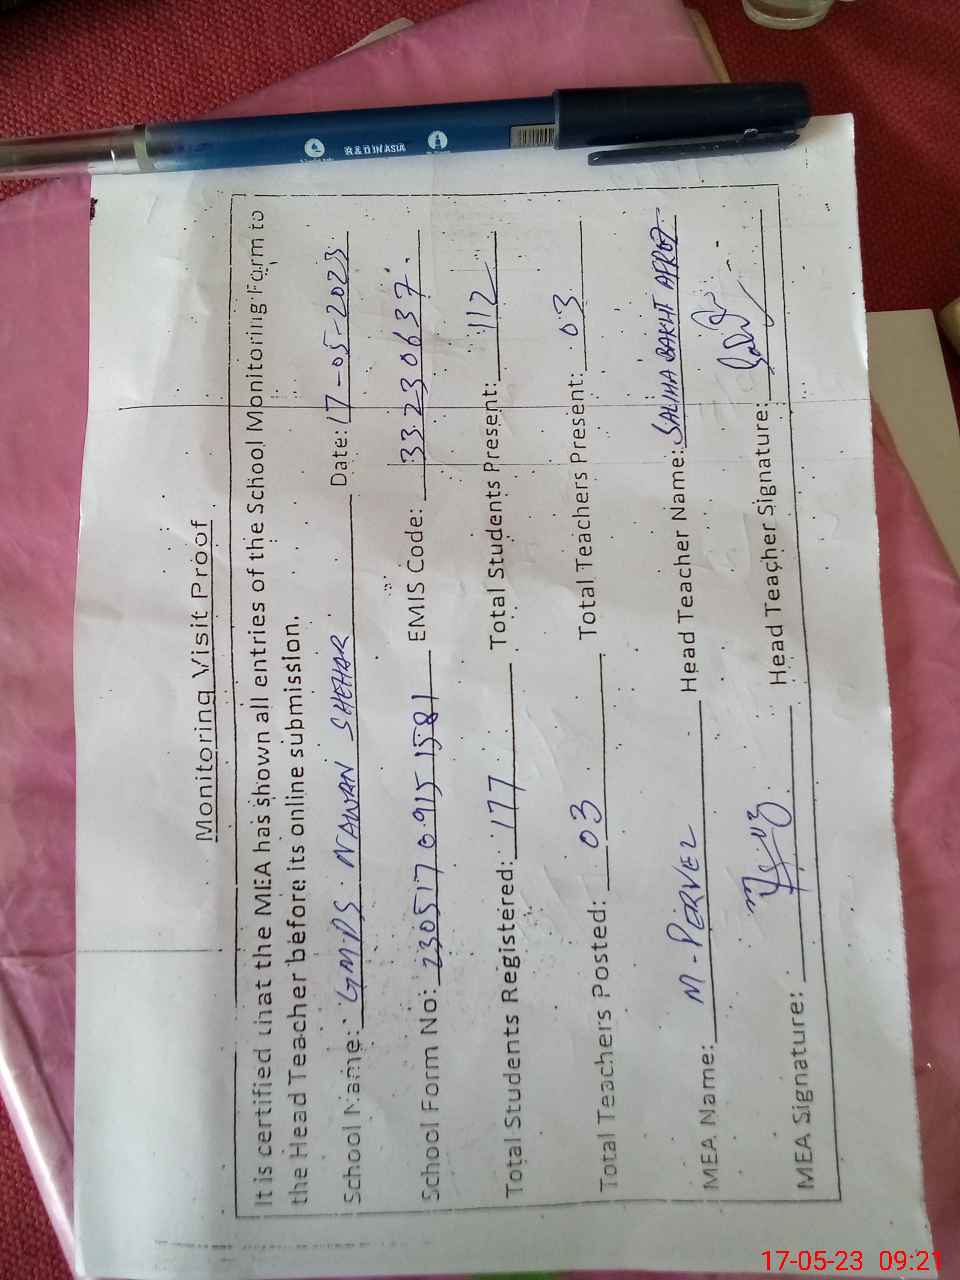 Monitoring Visit Proof
It is certified that the MEA has shown all entries of the School Monitoring Form to
the Head Teacher before its online submission.
School Name: GMPS NAWAN SHEHAR Date: 17-05-2023
School Form No: 230517 0915 1581 EMIS Code: 33230637
Total Students Registered: 177 Total Students Present: 112
Total Teachers Posted: 03 Total Teachers Present: 03
MEA Name: M-PERVEZ Head Teacher Name: SALIHA BAKHT AFROZ
MEA Signature: Head Teacher Signature:
R & D IN ASIA
17-05-23 09:21